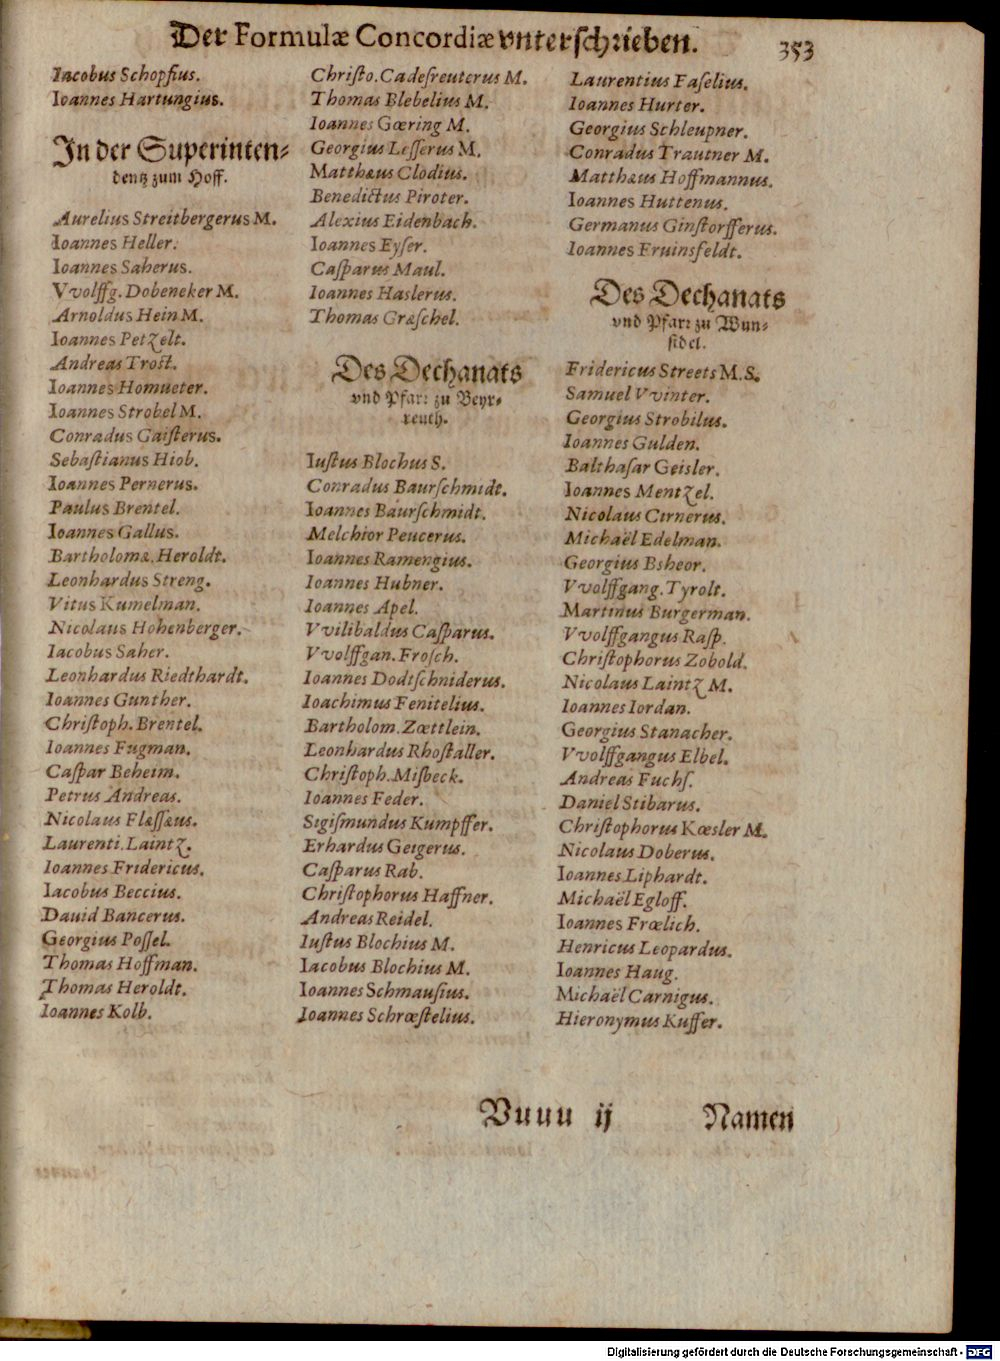 Der Formulæ Concordiæ vnterschrieben. 353
Iacobus Schopfius.
Ioannes Hartungius.
In der Superinten-
dentz zum Hoff.
Aurelius Streitbergerus M.
Ioannes Heller.
Ioannes Saherus.
Vvolffg. Dobeneker M.
Arnoldus Hein M.
Ioannes Petzelt.
Andreas Trost.
Ioannes Homueter.
Ioannes Strobel M.
Conradus Gaisterus.
Sebastianus Hiob.
Ioannes Pernerus.
Paulus Brentel.
Ioannes Gallus.
Bartholomæ. Heroldt.
Leonhardus Streng.
Vitus Kumelman.
Nicolaus Hohenberger.
Iacobus Saher.
Leonhardus Riedthardt.
Ioannes Gunther.
Christoph. Brentel.
Ioannes Fugman.
Caspar Beheim.
Petrus Andreas.
Nicolaus Flæssæus.
Laurenti. Laintz.
Ioannes Fridericus.
Iacobus Beccius.
Dauid Bancerus.
Georgius Possel.
Thomas Hoffman.
Thomas Heroldt.
Ioannes Kolb.
Christo. Cadesreuterus M.
Thomas Blebelius M.
Ioannes Gœring M.
Georgius Lesserus M.
Matthæus Clodius.
Benedictus Piroter.
Alexius Eidenbach.
Ioannes Eyser.
Casparus Maul.
Ioannes Haslerus.
Thomas Græschel.
Des Dechanats
vnd Pfarr zu Beyr-
reuth.
Iustus Blochus S.
Conradus Baurschmidt.
Ioannes Baurschmidt.
Melchior Peucerus.
Ioannes Ramengius.
Ioannes Hubner.
Ioannes Apel.
Vvilibaldus Casparus.
Vvolffgan. Frosch.
Ioannes Dodtschniderus.
Ioachimus Fenitelius.
Bartholom. Zœttlein.
Leonhardus Rhostaller.
Christoph. Misbeck.
Ioannes Feder.
Sigismundus Kumpffer.
Erhardus Geigerus.
Casparus Rab.
Christophorus Haffner.
Andreas Reidel.
Iustus Blochius M.
Iacobus Blochius M.
Ioannes Schmausius.
Ioannes Schrœstelius.
Laurentius Faselius.
Ioannes Hurter.
Georgius Schleupner.
Conradus Trautner M.
Matthæus Hoffmannus.
Ioannes Huttenus.
Germanus Ginstorfferus.
Ioannes Fruinsfeldt.
Des Dechanats
vnd Pfarr zu Wun-
sidel.
Fridericus Streets M.S.
Samuel Vvinter.
Georgius Strobilus.
Ioannes Gulden.
Balthasar Geisler.
Ioannes Mentzel.
Nicolaus Cirnerus.
Michaël Edelman.
Georgius Bsheor.
Vvolffgang. Tyrolt.
Martinus Burgerman.
Vvolffgangus Rasp.
Christophorus Zobold.
Nicolaus Laintz M.
Ioannes Iordan.
Georgius Stanacher.
Vvolffgangus Elbel.
Andreas Fuchs.
Daniel Stibarus.
Christophorus Kœsler M.
Nicolaus Doberus.
Ioannes Liphardt.
Michaël Egloff.
Ioannes Frœlich.
Henricus Leopardus.
Ioannes Haug.
Michaël Carnigus.
Hieronymus Kuffer.
Vuuu ij Namen
Digitalisierung gefördert durch die Deutsche Forschungsgemeinschaft - DFG